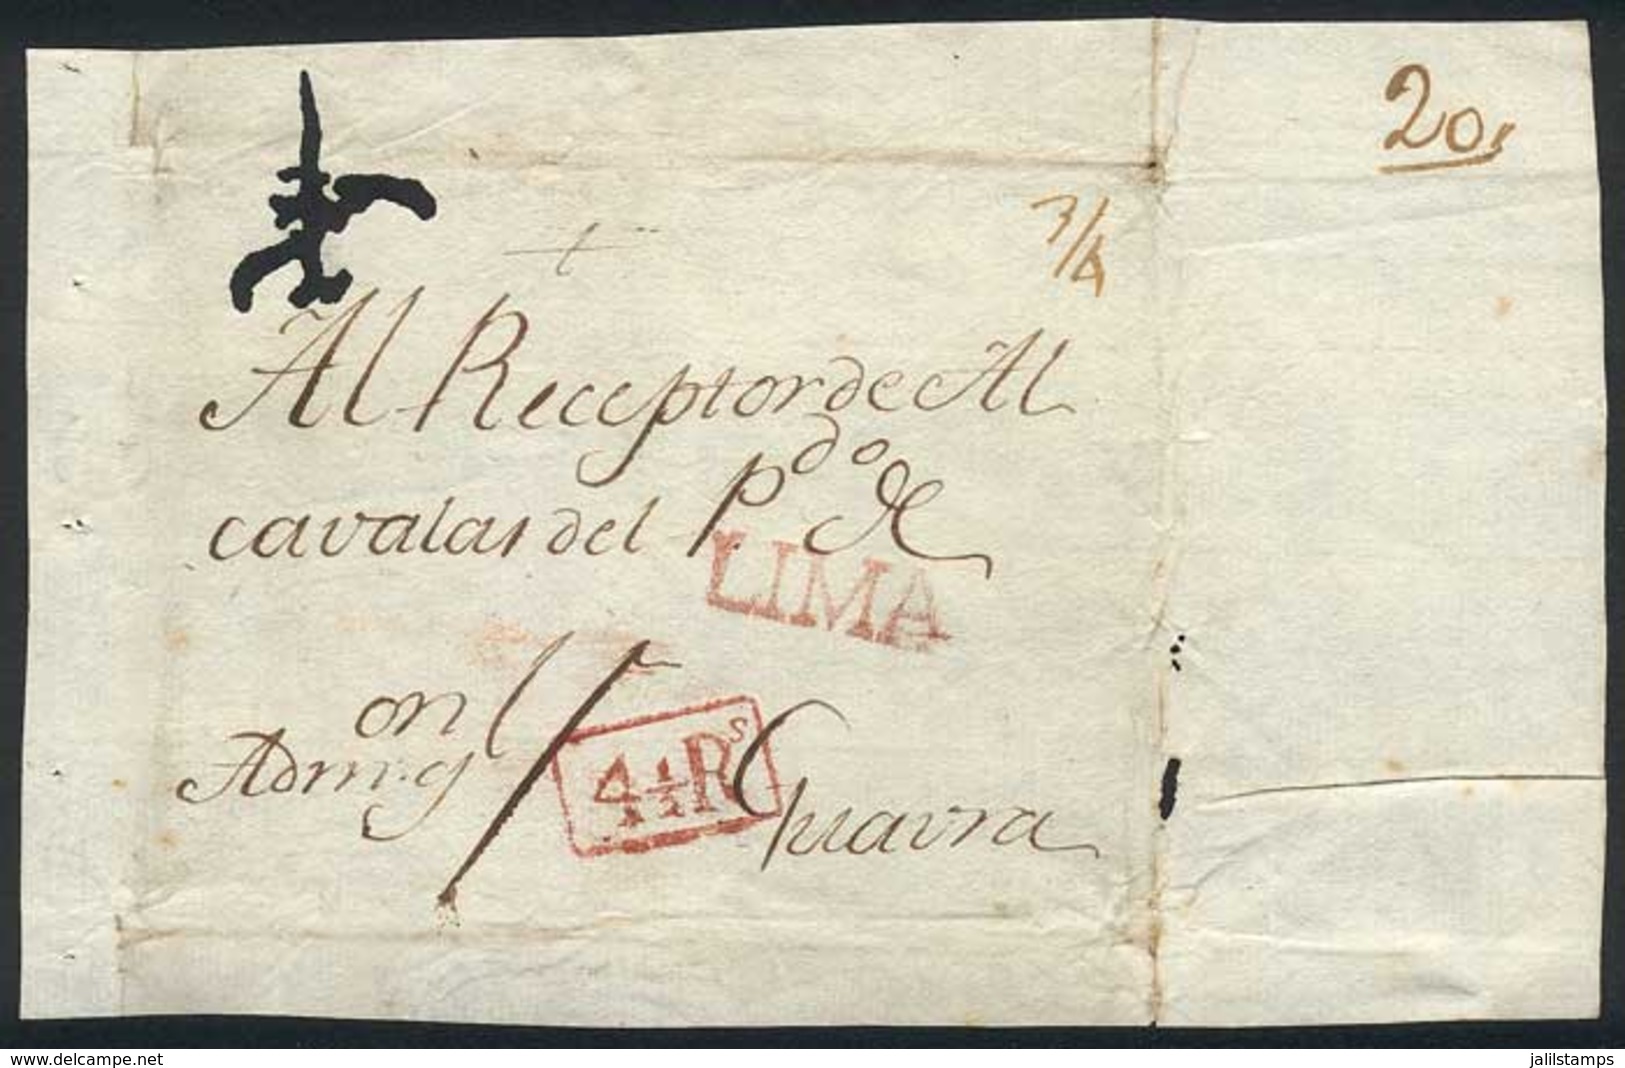 20
3/4
Al Receptor de Al
cavalas del P.do de
LIMA
on
Adm.
4½Rs
Guavra
www.delcampe.net
jalilstamps